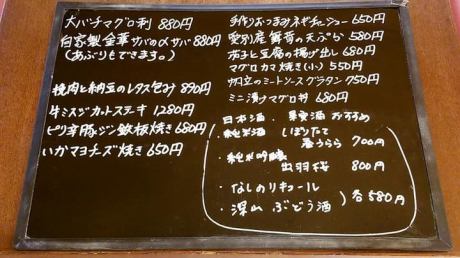 大バチマグロ刺 880円
自家製金華サバの〆サバ 880円
(あぶりもできます。)
挽肉と納豆のレタス包み 890円
牛ミスジカットステーキ 1280円
ピリ辛豚ジン鉄板焼き 680円
いかマヨチーズ焼き 650円
手作りおつまみネギチャーシュー 650円
愛別産舞茸の天ぷら 580円
茄子と豆腐の揚げ出し 680円
マグロカマ焼き(小) 550円
帆立のミートソースグラタン 750円
ミニ漬けマグロ丼 680円
日本酒・果実酒おすすめ
・純米酒 しぼりたて
春うらら 700円
・純米吟醸
出羽桜 800円
・なしのリキュール
・深山 ぶどう酒 各580円